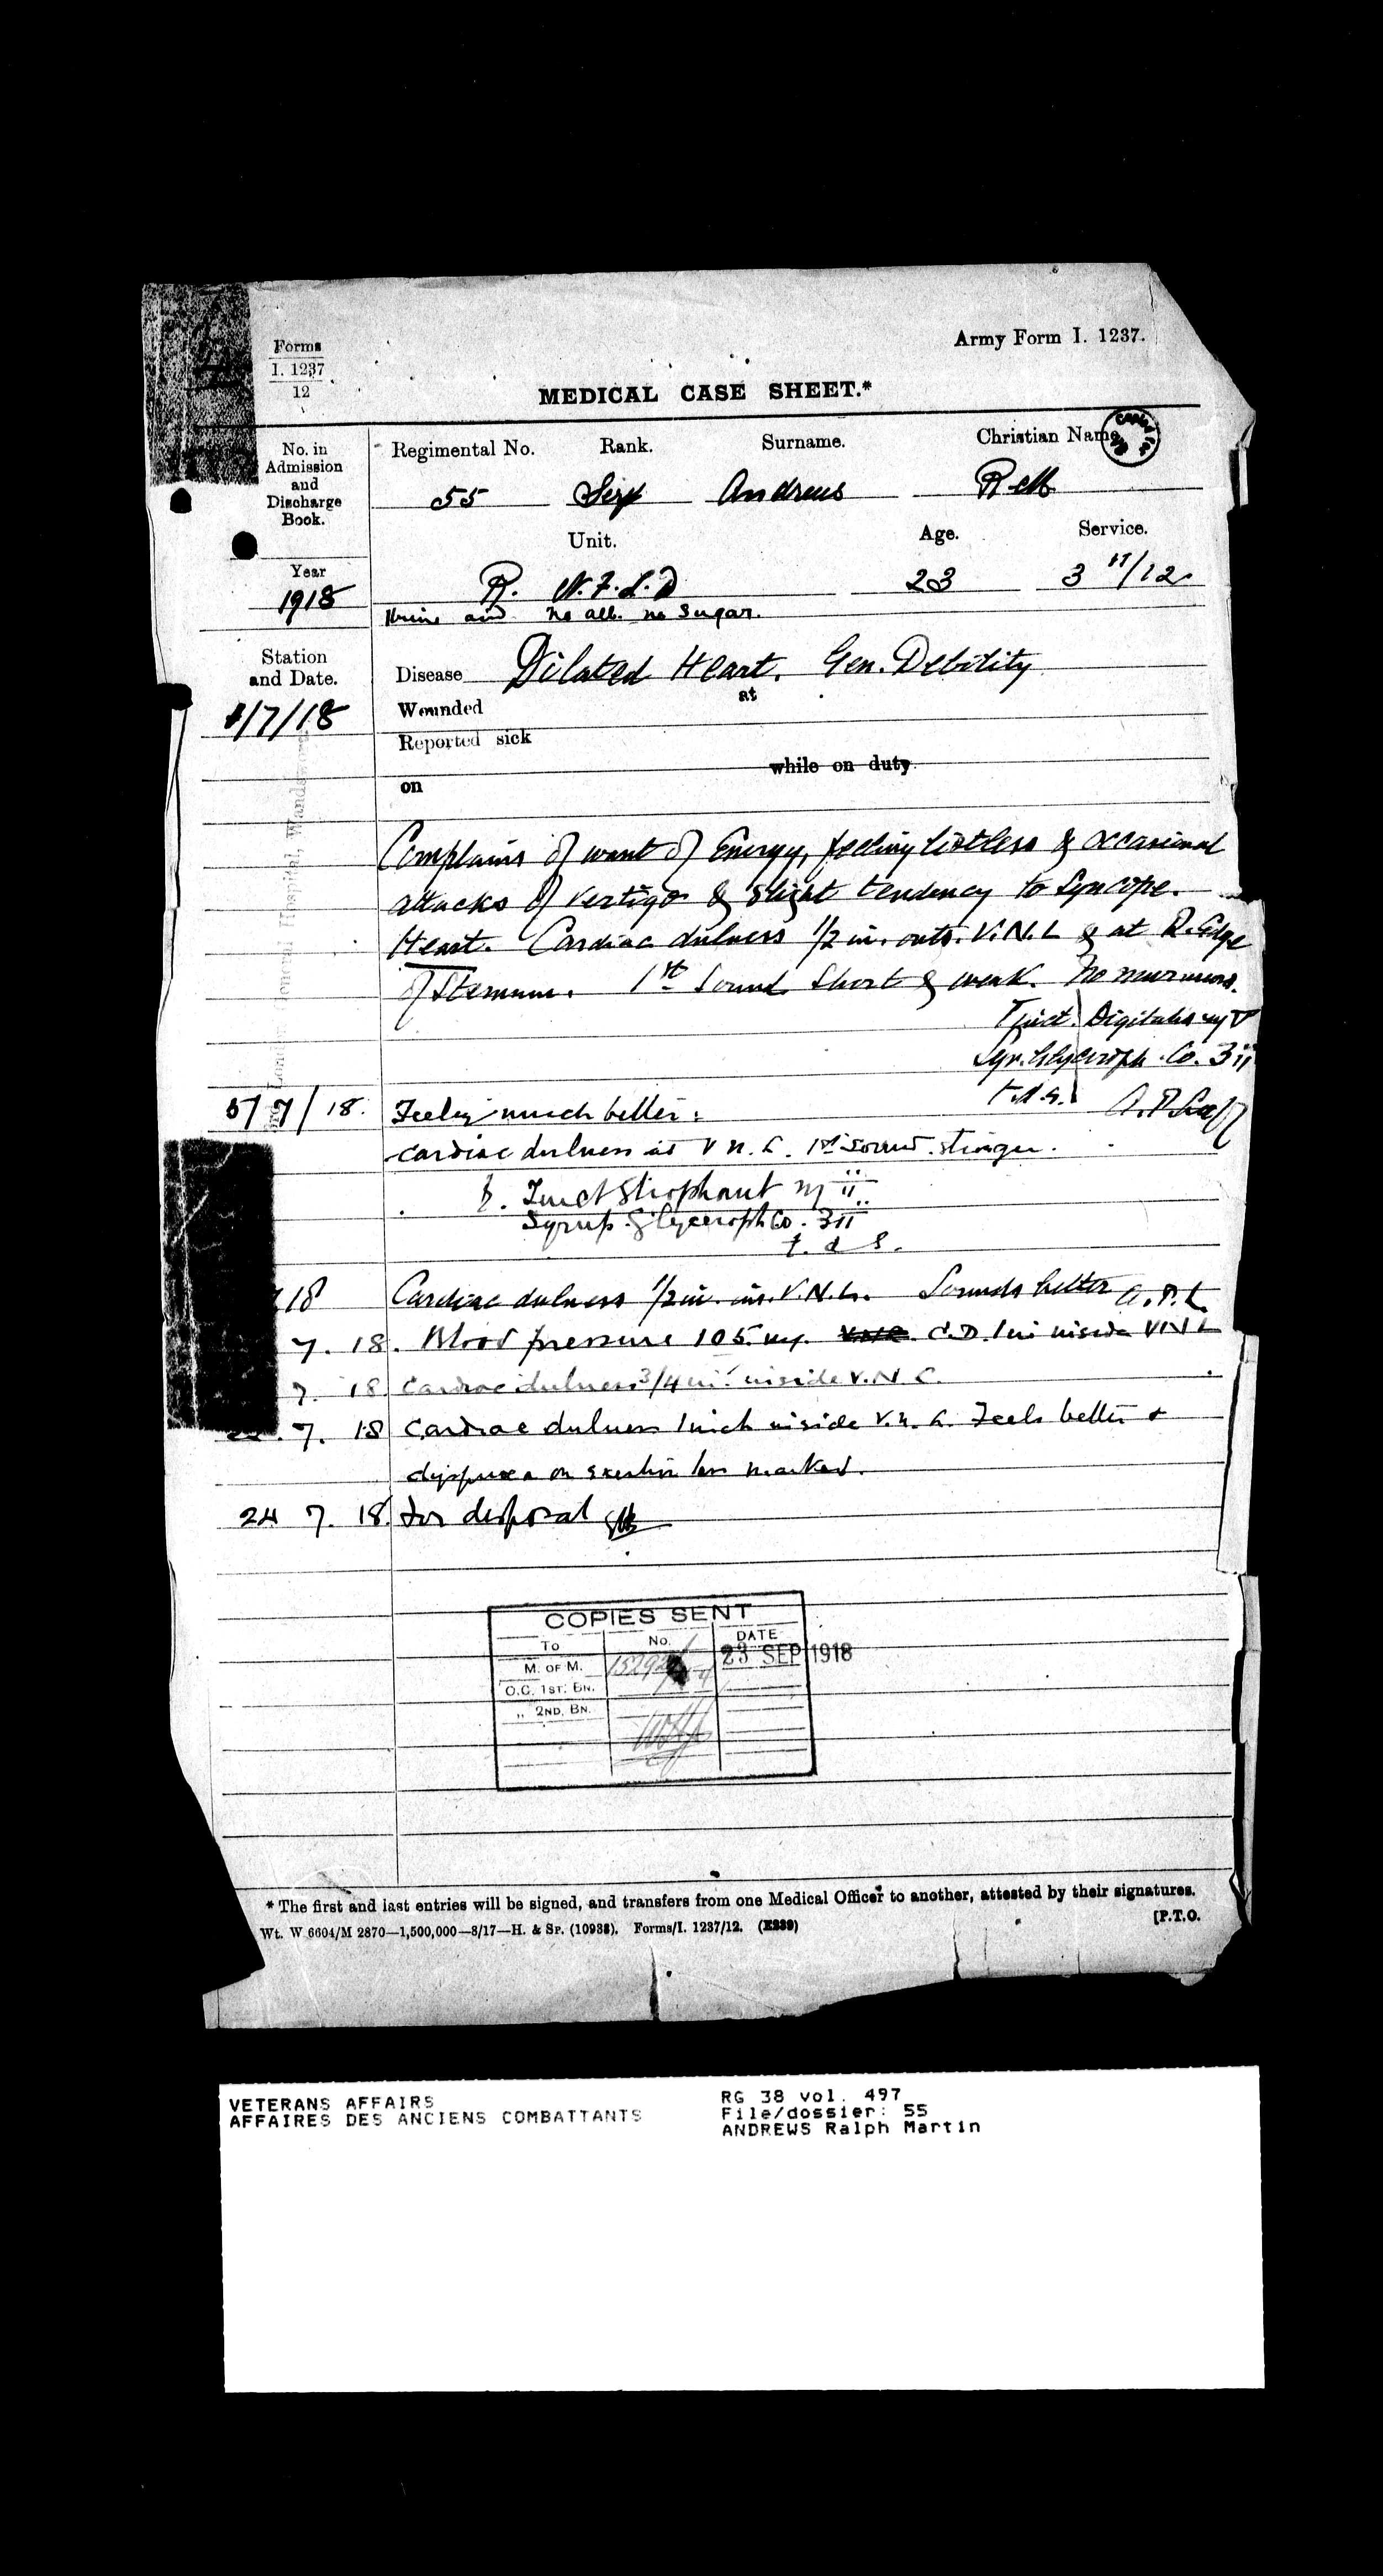 Forms
I. 1237
12
Army Form I. 1237.
MEDICAL CASE SHEET.*
No. in
Admission
and
Discharge
Book.
Regimental No. Rank. Surname. Christian Name
55 Serjt Andrews R M
Unit. Age. Service.
Year
1918
R. N.F.L.D 23 3 11/12
Urine acid no alb. no sugar.
Station
and Date.
Disease Dilated Heart. Gen. Debility
/7/18
Wounded at
Reported sick
while on duty
on
London General Hospital, Wandsworth
Complains of want of Energy, feeling listless & occasional
attacks of vertigo & slight tendency to Syncope.
Heart. Cardiac dulness 1/2 in. outs. V.N.L & at R. Edge
of Sternum. 1st Sound short & weak. No murmurs.
Tinct. Digitalis
Syr. Glyceroph. Co. ʒii
t.d.s.
5/7/18. Feeling much better:
Cardiac dulness at V N. L. 1st sound stronger.
Tinct Strophant ɱ ii
Syrup. Glyceroph Co. ʒii
t. d s.
18 Cardiac dulness 1/2 in. ins. V.N.L. Sounds better A.P.L.
7. 18. Blood pressure 105. C.D. 1 in inside VNL
7. 18 Cardiac dulness 3/4 in. inside V.N.L.
. 7. 18 Cardiac dulness 1 inch inside V.N.L. Feels better +
dyspnoea on exertion less marked.
24 7. 18. For disposal
COPIES SENT
To No. DATE
M. OF M. 23 SEP 1918
O.C. 1ST. BN.
„ 2ND. BN.
* The first and last entries will be signed, and transfers from one Medical Officer to another, attested by their signatures.
[P.T.O.
Wt. W 6604/M 2870—1,500,000—8/17—H. & Sp. (10938). Forms/I. 1237/12. (E339)
VETERANS AFFAIRS
AFFAIRES DES ANCIENS COMBATTANTS
RG 38 vol. 497
File/dossier: 55
ANDREWS Ralph Martin